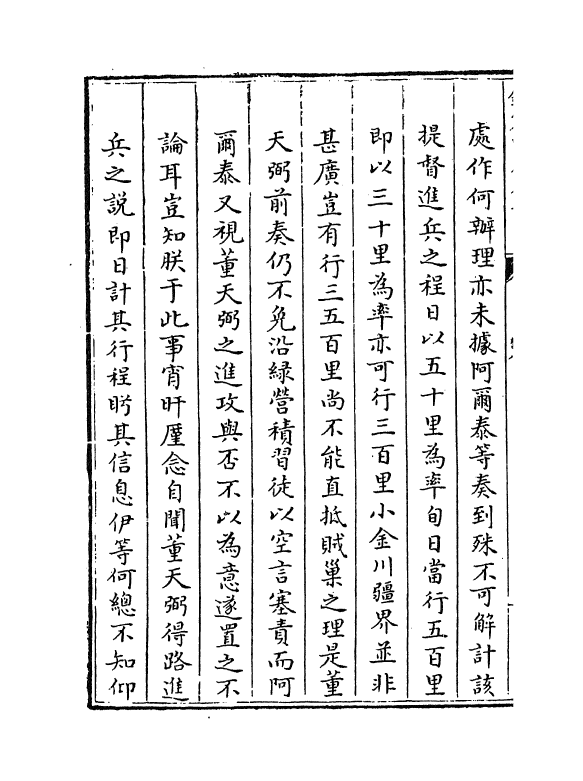 處作何辦理亦未據阿爾泰等奏到殊不可解計該
提督進兵之程日以五十里為率旬日當行五百里
即以三十里為率亦可行三百里小金川疆界並非
甚廣豈有行三五百里尚不能直抵賊巢之理是董
天弼前奏仍不免沿緑營積習徒以空言塞責而阿
爾泰又視董天弼之進攻與否不以為意遂置之不
論耳豈知朕于此事宵旰厪念自聞董天弼得路進
兵之説即日計其行程盻其信息伊等何總不知仰